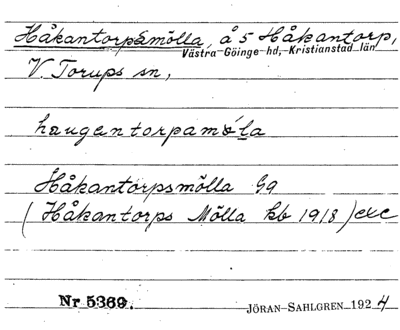 Håkantorpsmölla, å 5 Håkantorp,
Västra Göinge hd, Kristianstad län
V. Torups sn,
haugantorpamöla
Håkantorpsmölla Gg
(Håkantorps Mölla kb 1918) exc
Nr 5369.
JÖRAN SAHLGREN 1924